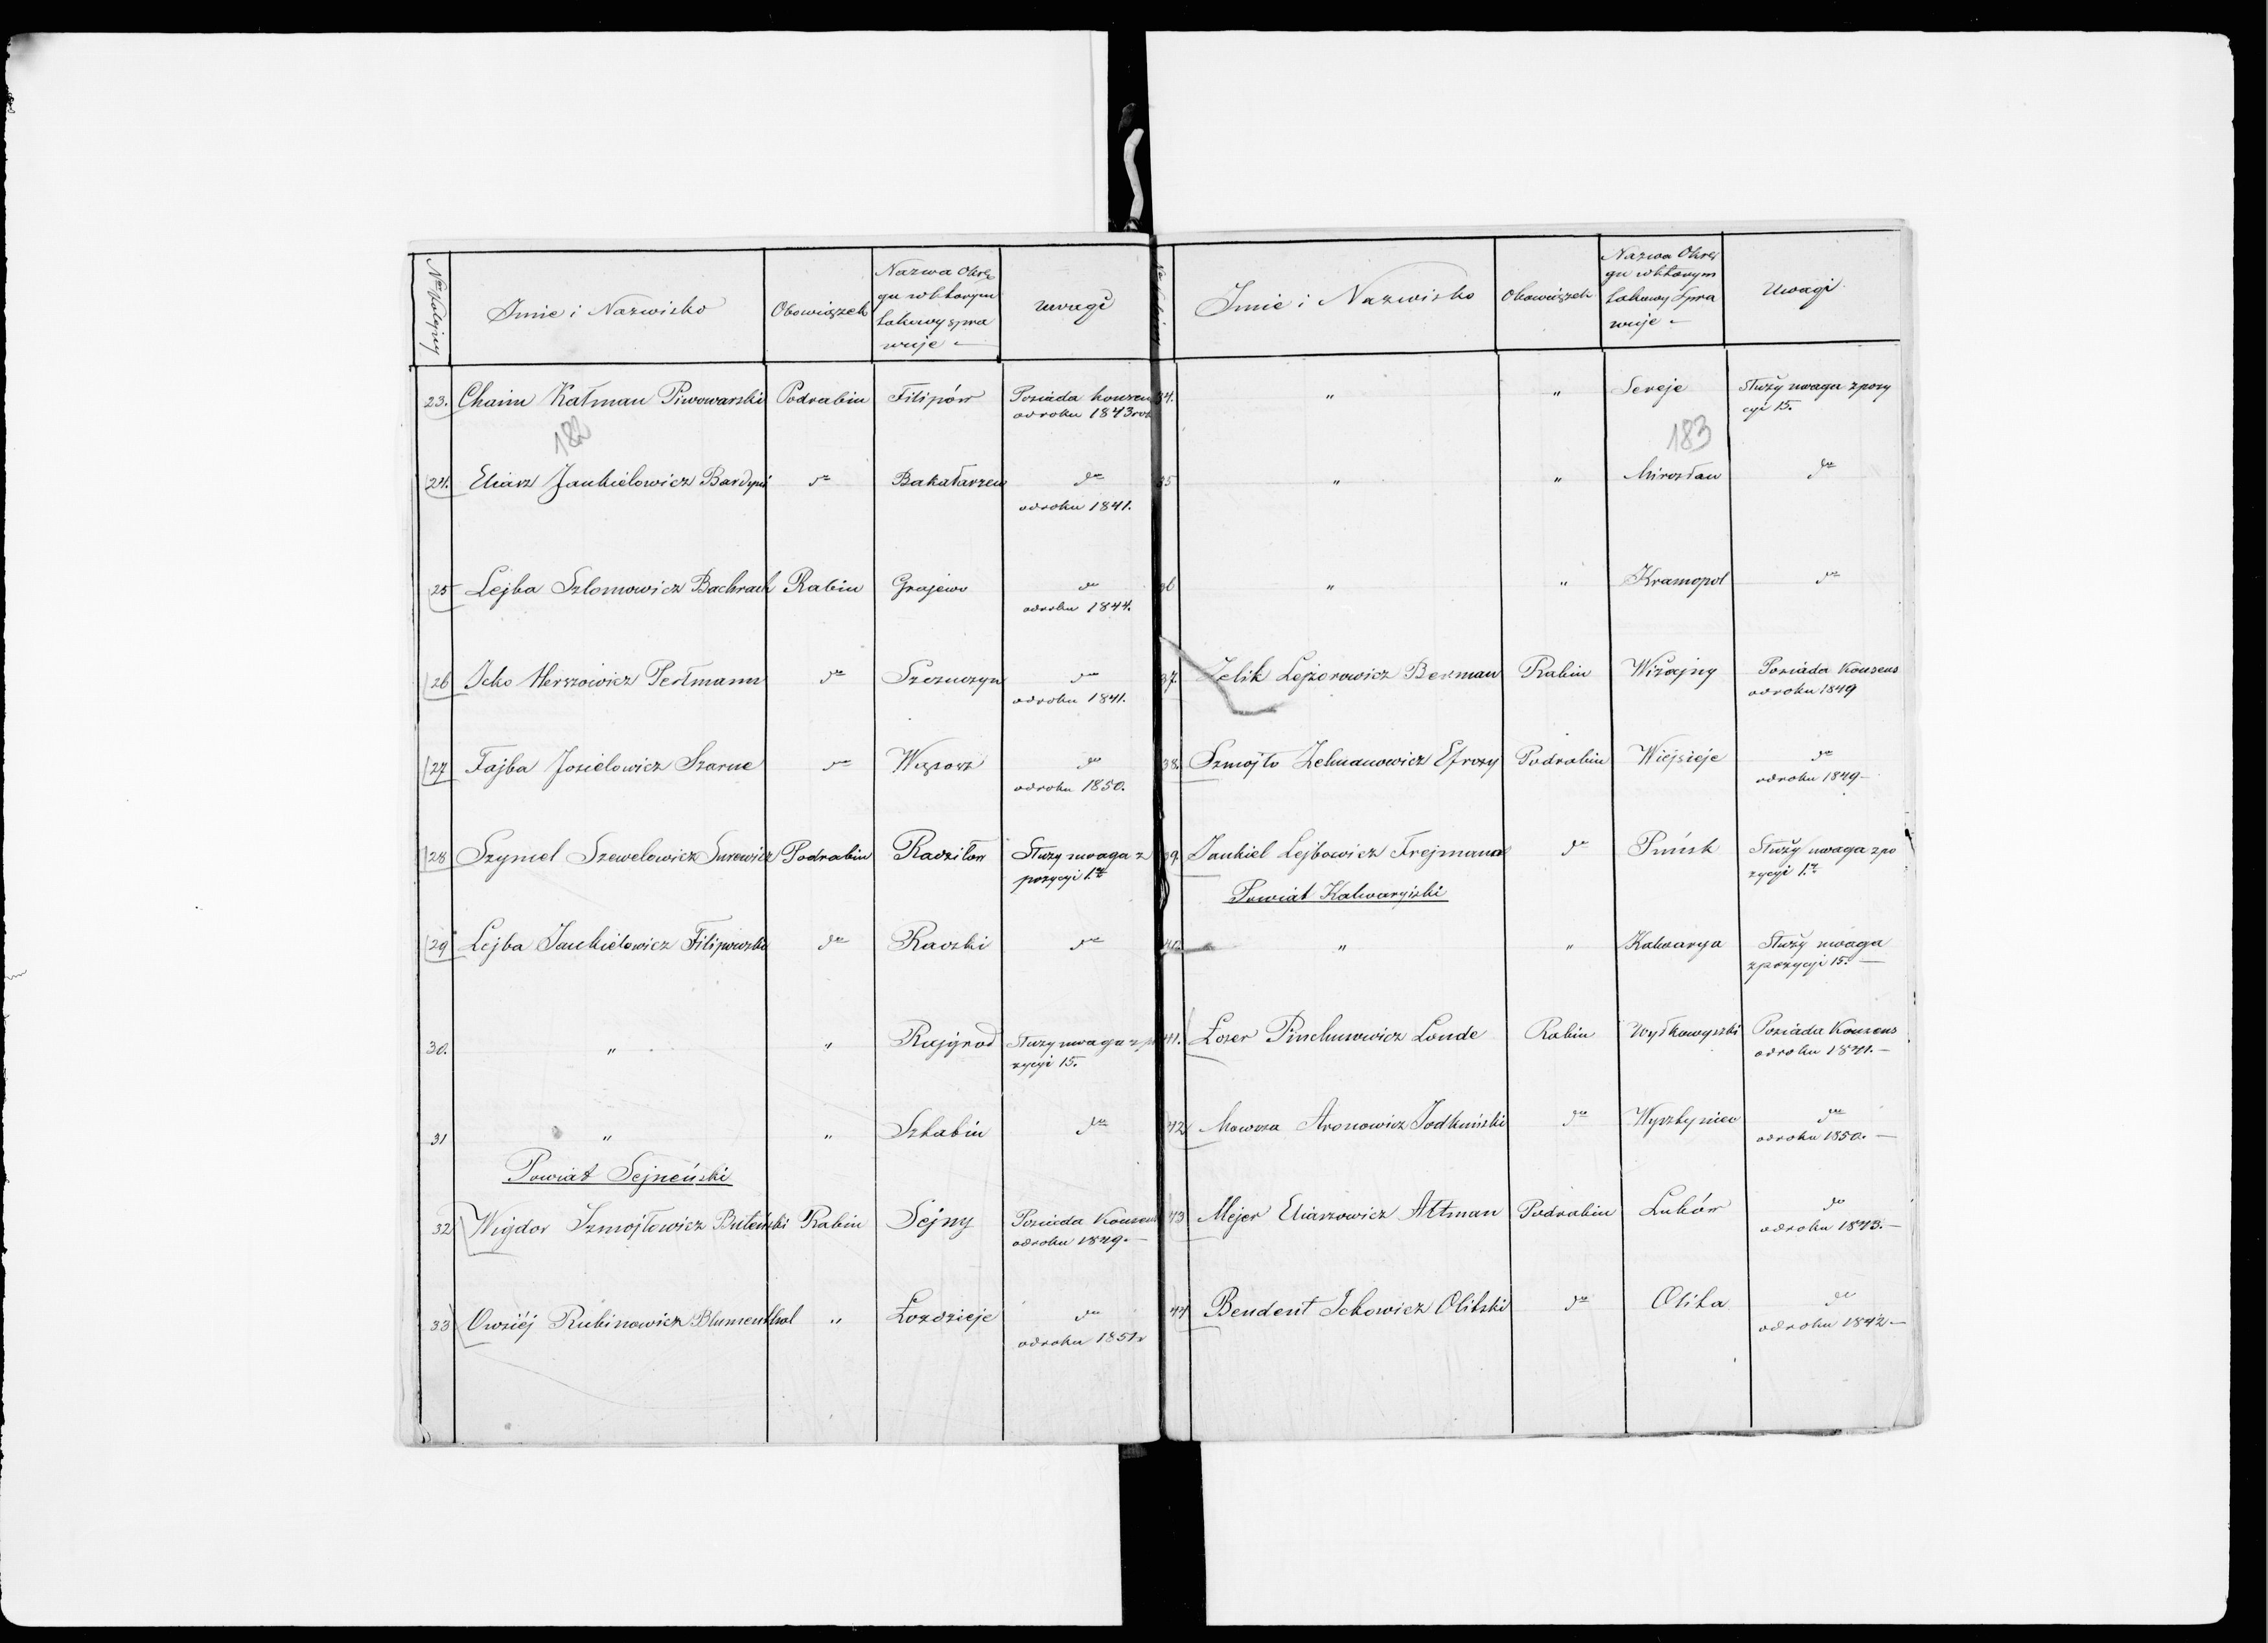 Nr kolejny
Imie i Nazwisko
Obowiązek
Nazwa Okrę
gu w którym
takowy spra
wuje
Uwagi
23. Chaim Kałman Piwowarski Podrabin Filipów Posiada konsens
od roku 1843 rok
182
24. Eliasz Jankielowicz Bardyni do Bakałarzew do
od roku 1841.
25 Lejba Szlomowicz Bachrach Rabin Grajewo do
od roku 1844.
26 Icko Herszowicz Perłmann do Szczuczyn do
od roku 1841.
27 Fajba Josielowicz Szarne do Wąsosz do
od roku 1850.
28 Szymel Szewelowicz Surewicz Podrabin Radziłów Służy uwaga z
pozycyi 1.
29 Lejba Jankielowicz Filipowski do Raczki do
30. " " Rajgrod Służy uwaga z po
zycyi 15.
31 " " Sztabin do
Powiat Sejneński
32 Wigdor Szmojłowicz Buteński Rabin Sejny Posiada Konsens
od roku 1849.
33 Owsiéj Rubinowicz Blumenthal " Łozdzieje do
od roku 1851r
Imie i Nazwisko
Obowiązek
Nazwa Okrę
gu w którym
takowy Spra
wuje
Uwagi
34. " " Sereje Służy uwaga z pozy
cyi 15.
183
35 " " Mirosław do
36 " " Kramopol do
37 Zelik Lejzorowicz Berman Rabin Wiżajny Posiada Konsens
od roku 1849
38. Szmojło Zelmanowicz Efrozy Podrabin Wiejsieje do
od roku 1849
39. Jankiel Lejbowicz Frejmana do Puńsk Służy uwaga z po
zycyi 1.
Powiat Kalwaryiski
40. " " Kalwarya Służy uwaga
z pozycyi 15.
41. Łozer Pinchusowicz Londe Rabin Wyłkowyszki Posiada Konsens
od roku 1841.
42 Mowsza Aronowicz Jodkuński do Wysztyniec do
od roku 1850.
43 Mejer Eliaszowicz Altman Podrabin Lubów do
od roku 1843.
44 Bendent Ickowicz Olitski do Olita do
od roku 1842